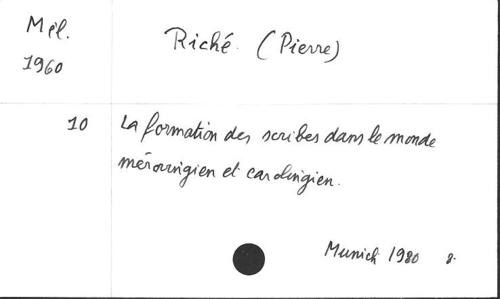 Mél.
1960
Riché. (Pierre)
10
La formation des scribes dans le monde
mérovingien et carolingien.
Munich 1980 8-